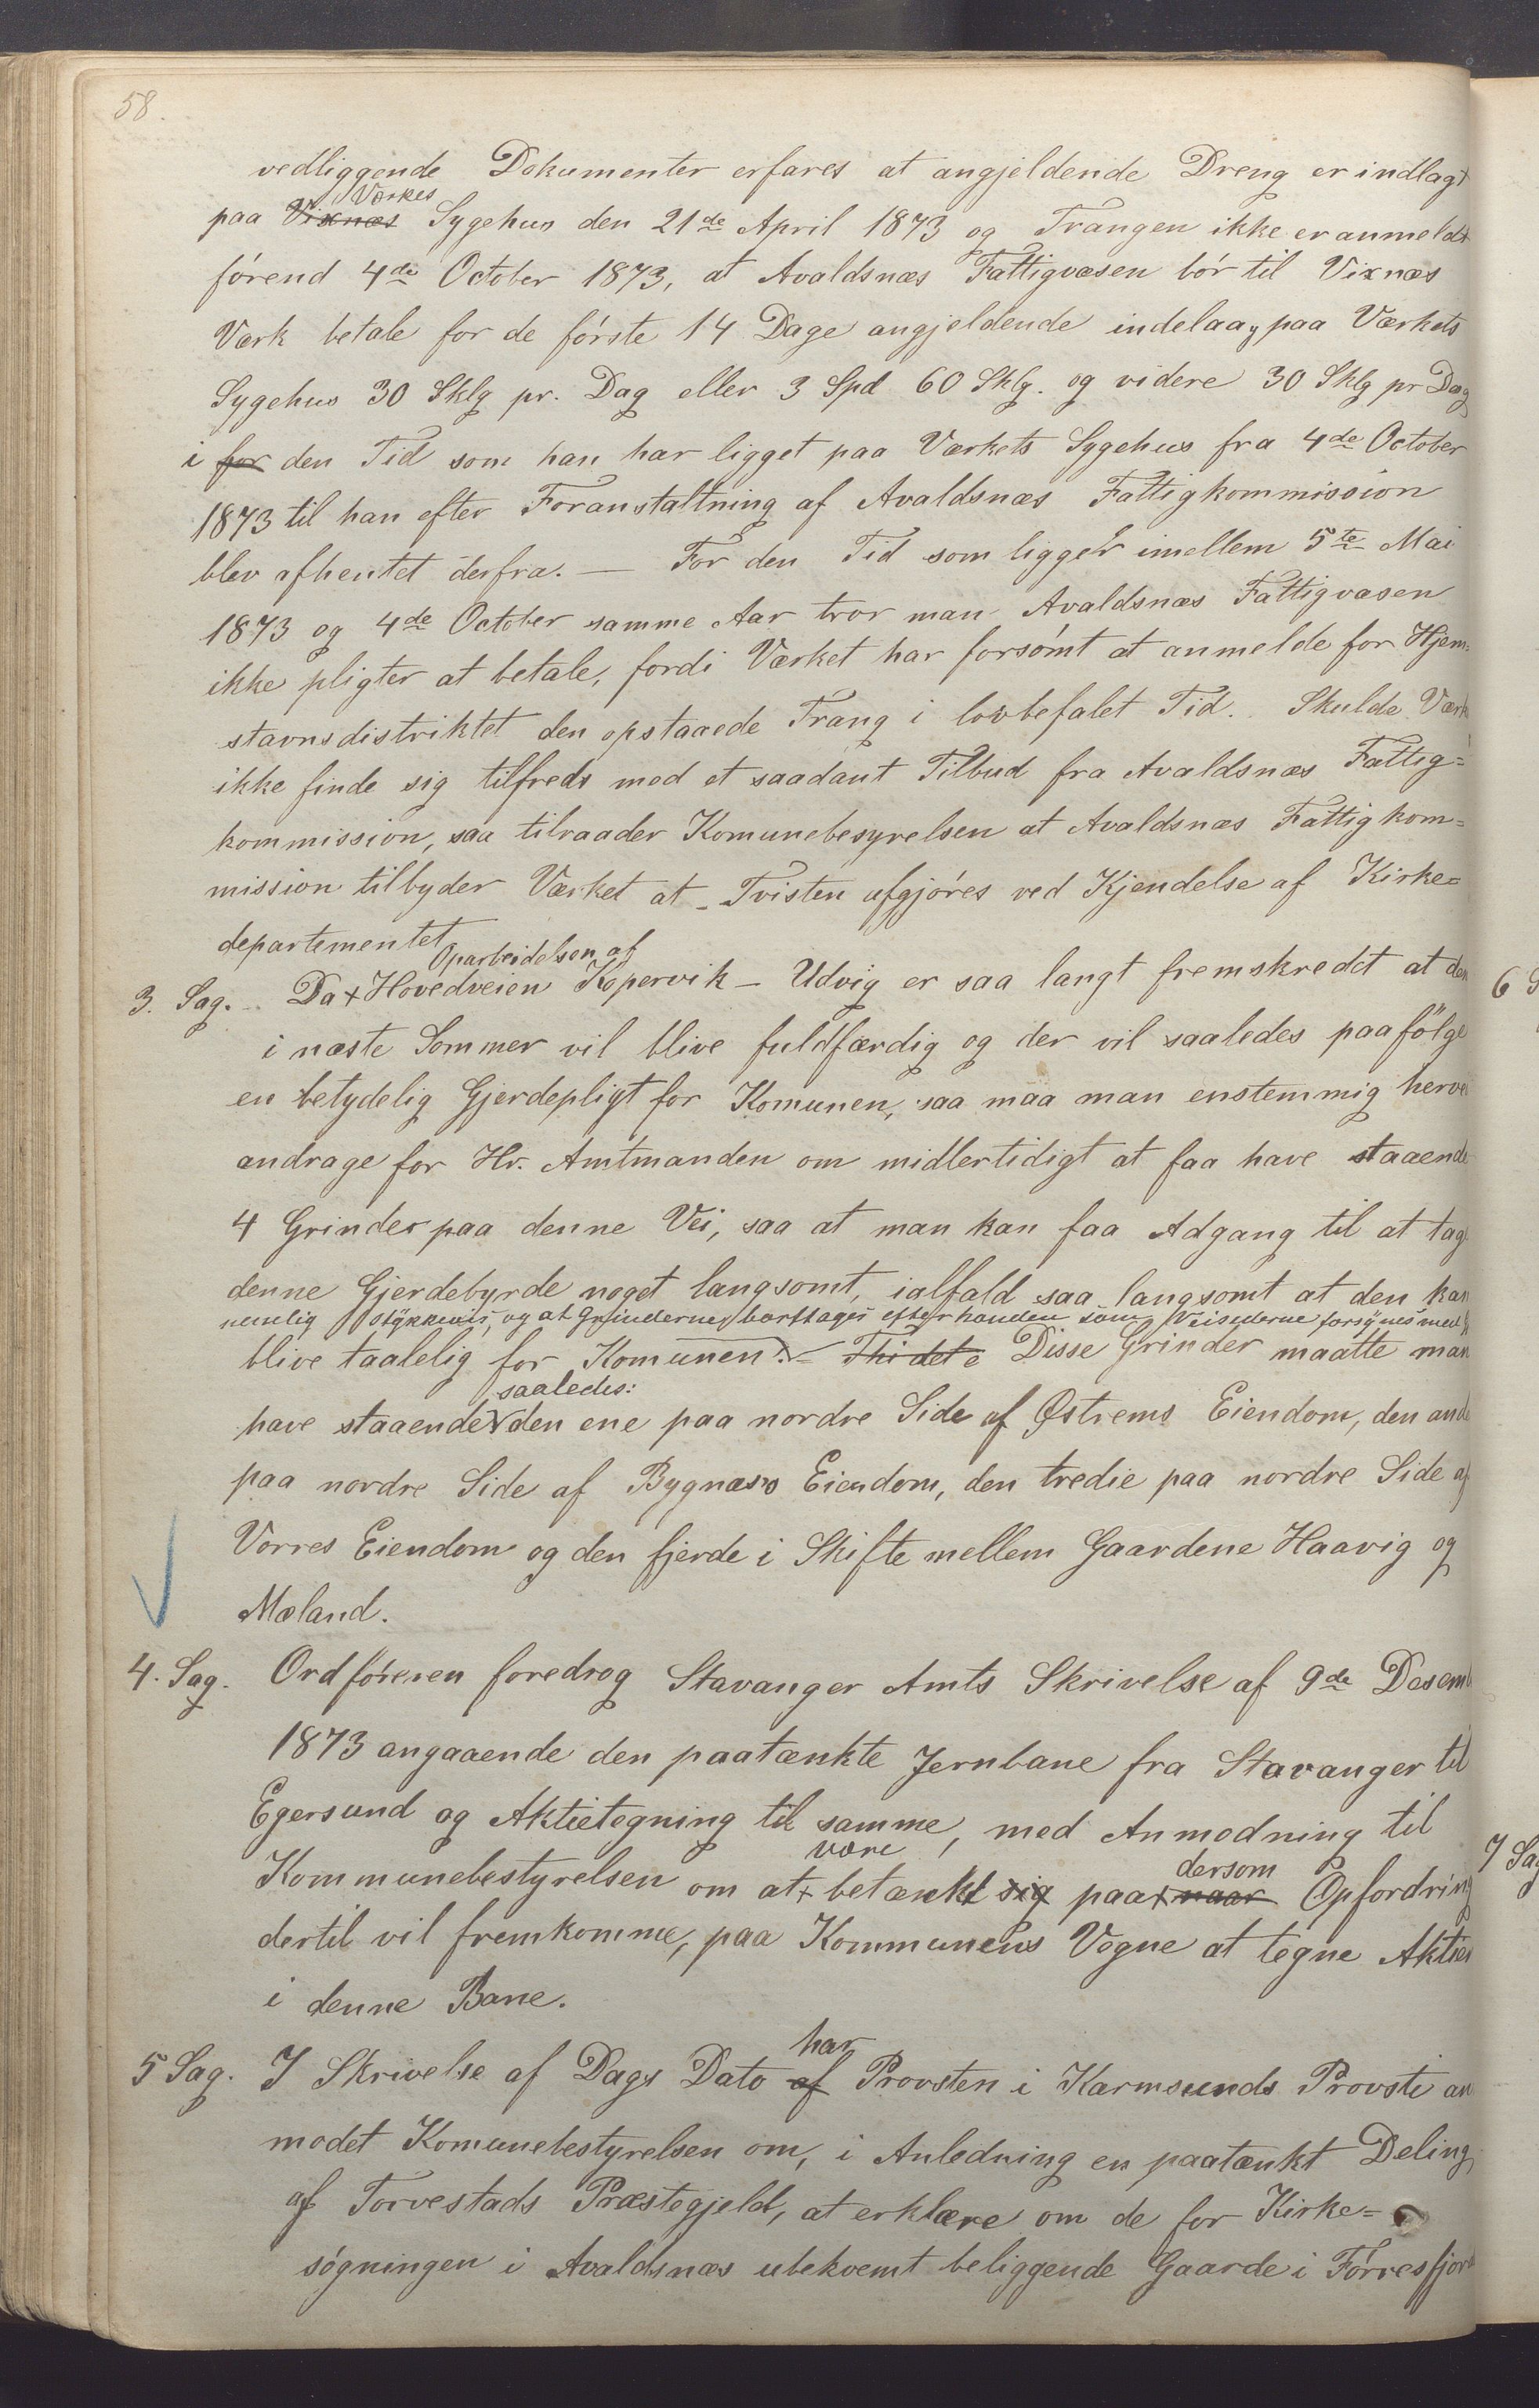 58.
vedliggende Dokumenter erfares at angjeldende Dreng er indlagt
Værkes
paa Vixnæs Sygehus den 21de April 1873 og Trangen ikke er anmeldt
førend 4de October 1873, at Avaldsnæs Fattigvæsen bør til Vixnæs
Værk betale for de første 14 Dage angjeldende indelaa, paa Værkets
Sygehus 30 Sklg pr. Dag eller 3 Spd 60 Sklg. og videre 30 Sklg pr Dag
i for den Tid som han har ligget paa Værkets Sygehus fra 4de October
1873 til han efter Foranstaltning af Avaldsnæs Fattigkommission
blev afhentet derfra. — For den Tid som ligger imellem 5te Mai
1873 og 4de October samme Aar tror man Avaldsnæs Fattigvæsen
ikke pligter at betale, fordi Værket har forsømt at anmelde for Hjem-
stavnsdistriktet den opstaaede Trang i lovbefalet Tid. Skulde Værk
ikke finde sig tilfreds med et saadant Tilbud fra Avaldsnæs Fattig=
kommission, saa tilraader Komunebesyrelsen at Avaldsnæs Fattigkom=
mission tilbyder Værket at Tvisten afgjøres ved Kjendelse af Kirke=
departementet
Oparbeidelsen af
3. Sag. Da + Hovedveien Kopervik – Udvig er saa langt fremskredet at den
i næste Sommer vil blive fuldfærdig og der vil saaledes paafölge
en betydelig Gjerdepligt for Komunen, saa maa man enstemmig herve
andrage for Hr. Amtmanden om midlertidigt at faa have staaende
4 Grinder paa denne Vei, saa at man kan faa Adgang til at tag
denne Gjerdebyrde noget langsomt, ialfald saa langsomt at den kan
nemlig stykkevis, og at Grinderne borttages efterhaanden som Veisiderne forsynes med
blive taalelig for Komunen. – Thi det e Disse Grinder maatte man
saaledes:
have staaende den ene paa nordre Side af Østrems Eiendom, den and
paa nordre Side af Bygnæss Eiendom, den tredie paa nordre Side af
Vorres Eiendom og den fjerde i Skifte mellem Gaardene Haavig og
Mæland.
4. Sag. Ordføreren foredrog Stavanger Amts Skrivelse af 9de Desemb
1873 angaaende den paatænkte Jernbane fra Stavanger til
Egersund og Aktietegning til samme, med Anmodning til
være dersom
Kommunebestyrelsen om at + betænkt sig paa + naar Opfordring
dertil vil fremkomme, paa Kommunens Vegne at tegne Aktier
i denne Bane.
har
5 Sag. I Skrivelse af Dags Dato af Provsten i Karmsunds Provsti an
modet Komunebestyrelsen om, i Anledning en paatænkt Deling
af Torvestads Præstegjeld, at erklære om de for Kirke=
søgningen i Avaldsnæs ubekvemt beliggende Gaarde i Førresfjord
6 S
7 Sag